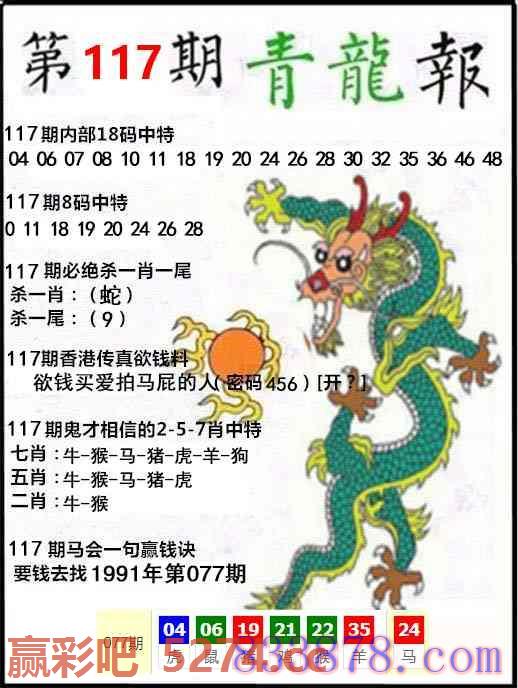 第117期青龍報
117期内部18码中特
04 06 07 08 10 11 18 19 20 24 26 28 30 32 35 36 46 48
117期8码中特
0 11 18 19 20 24 26 28
117期必绝杀一肖一尾
杀一肖：（蛇）
杀一尾：（9）
117期香港传真欲钱料
欲钱买爱拍马屁的人（密码456）[开？]
117期鬼才相信的2-5-7肖中特
七肖：牛-猴-马-猪-虎-羊-狗
五肖：牛-猴-马-猪-虎
二肖：牛-猴
117期马会一句赢钱诀
要钱去找1991年第077期
04 06 19 21 22 35 24
077期 虎 鼠 猪 鸡 猴 羊 马
赢彩吧